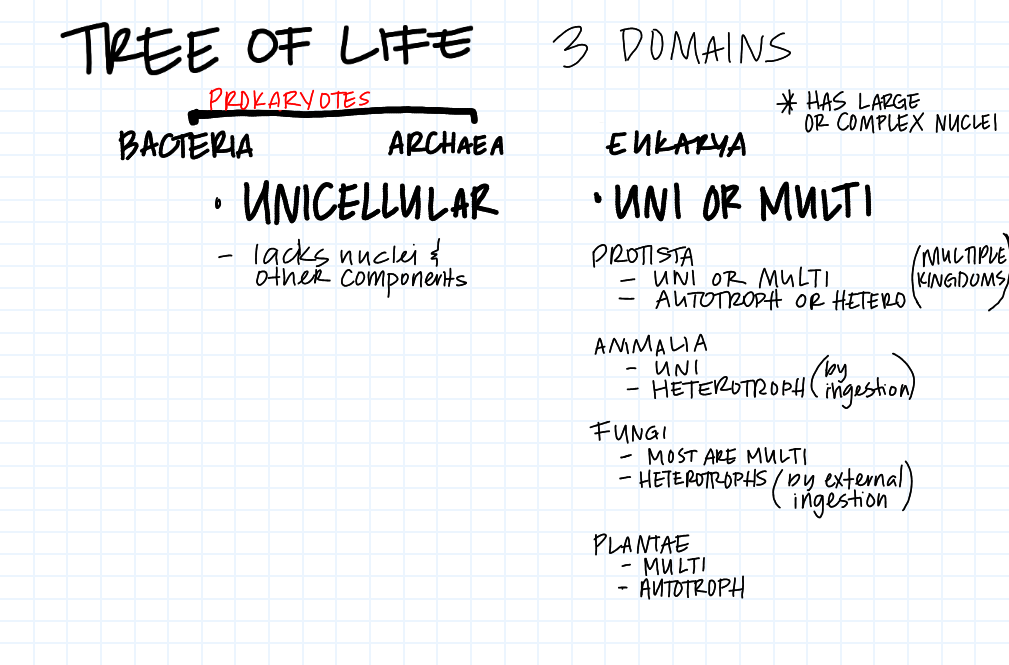 TREE OF LIFE 3 DOMAINS
PROKARYOTES
* HAS LARGE
OR COMPLEX NUCLEI
BACTERIA ARCHAEA EUKARYA
• UNICELLULAR
- lacks nuclei &
other components
• UNI OR MULTI
PROTISTA
- UNI OR MULTI
- AUTOTROPH OR HETERO
(MULTIPLE
KINGDOMS)
ANIMALIA
- UNI
- HETEROTROPH (by
ingestion)
FUNGI
- MOST ARE MULTI
- HETEROTROPHS (by external
ingestion)
PLANTAE
- MULTI
- AUTOTROPH